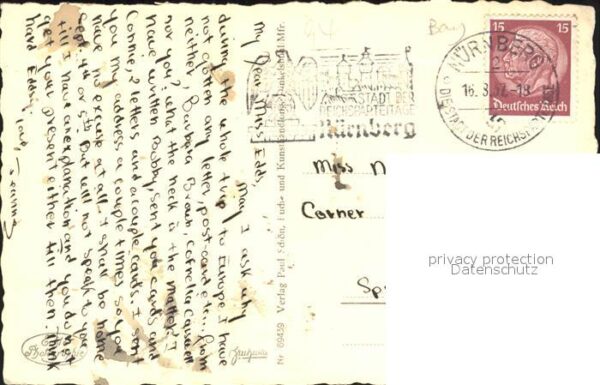 My Dear Miss Edds,
May I ask why
during the whole trip to Europe I have
not gotten any letter, post card etc. from
neither, Barbara Brown, Cornelia Caswell
nor you? What the heck is the matter? I
have written Bobby, sent you cards and
Cornie, letters and a couple cards. I sent
you my address a couple times so you
have no excuse at all. I shall be home
Sept. 4th or 5th. But will not speak to you
till I have an explanation and you do not
get your present either till then. Think
hard Eddy. Love,
Jeanny
Nr 09459 Verlag Paul Schön, Buch- und Kunsthandlung
STADT DER
REICHSPARTEITAGE
Nürnberg
NÜRNBERG
2
16.8.37.-18
DIE STADT DER REICHSPARTEITAGE
15 15
Deutsches Reich
Miss
Corner
Sp
privacy protection
Datenschutz